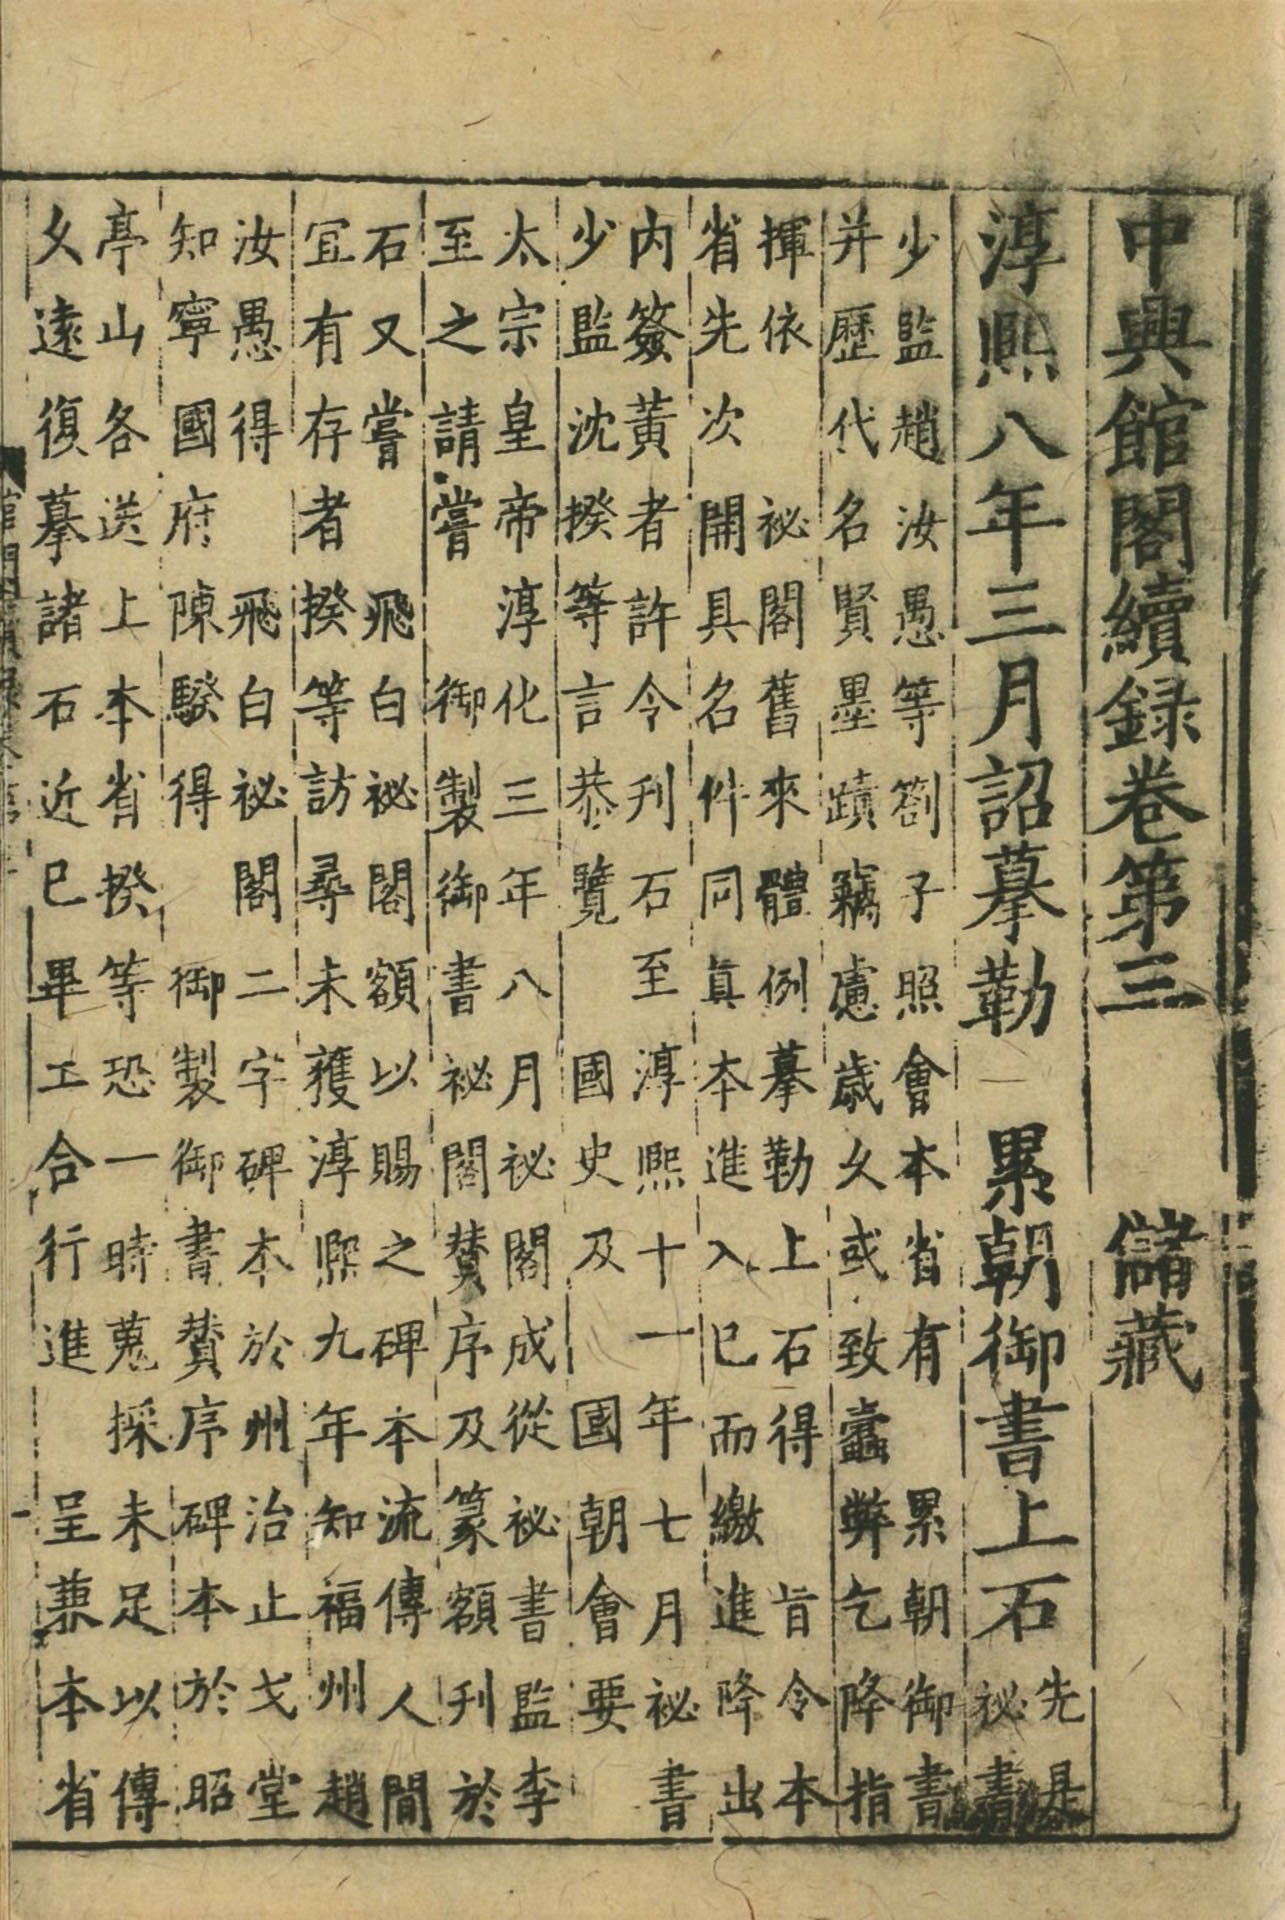 中興館閣續録卷第三　儲藏
淳熙八年三月詔摹勒　累朝御書上石
先是
秘書
少監趙汝愚等劄子照會本省有　累朝御書
并歷代名賢墨蹟竊慮歲久或致蠹弊乞降指
揮依　祕閣舊來體例摹勒上石得　旨令本
省先次開具名件同真本進入已而繳進降出
内簽黃者許令刋石至淳熙十一年七月祕書
少監沈揆等言恭覽　國史及　國朝會要
太宗皇帝淳化三年八月祕閣成從祕書監李
至之請嘗　御製御書祕閣贊序及篆額刋於
石又嘗　飛白祕閣額以賜之碑本流傳人間
冝有存者揆等訪尋未獲淳熙九年知福州趙
汝愚得　飛白祕閣二字碑本於州治止戈堂
知寧國府陳騤得　御製御書贊序碑本於昭
亭山各送上本省揆等恐一時蒐採未足以傳
久遠復摹諸石近已畢工合行進　呈兼本省